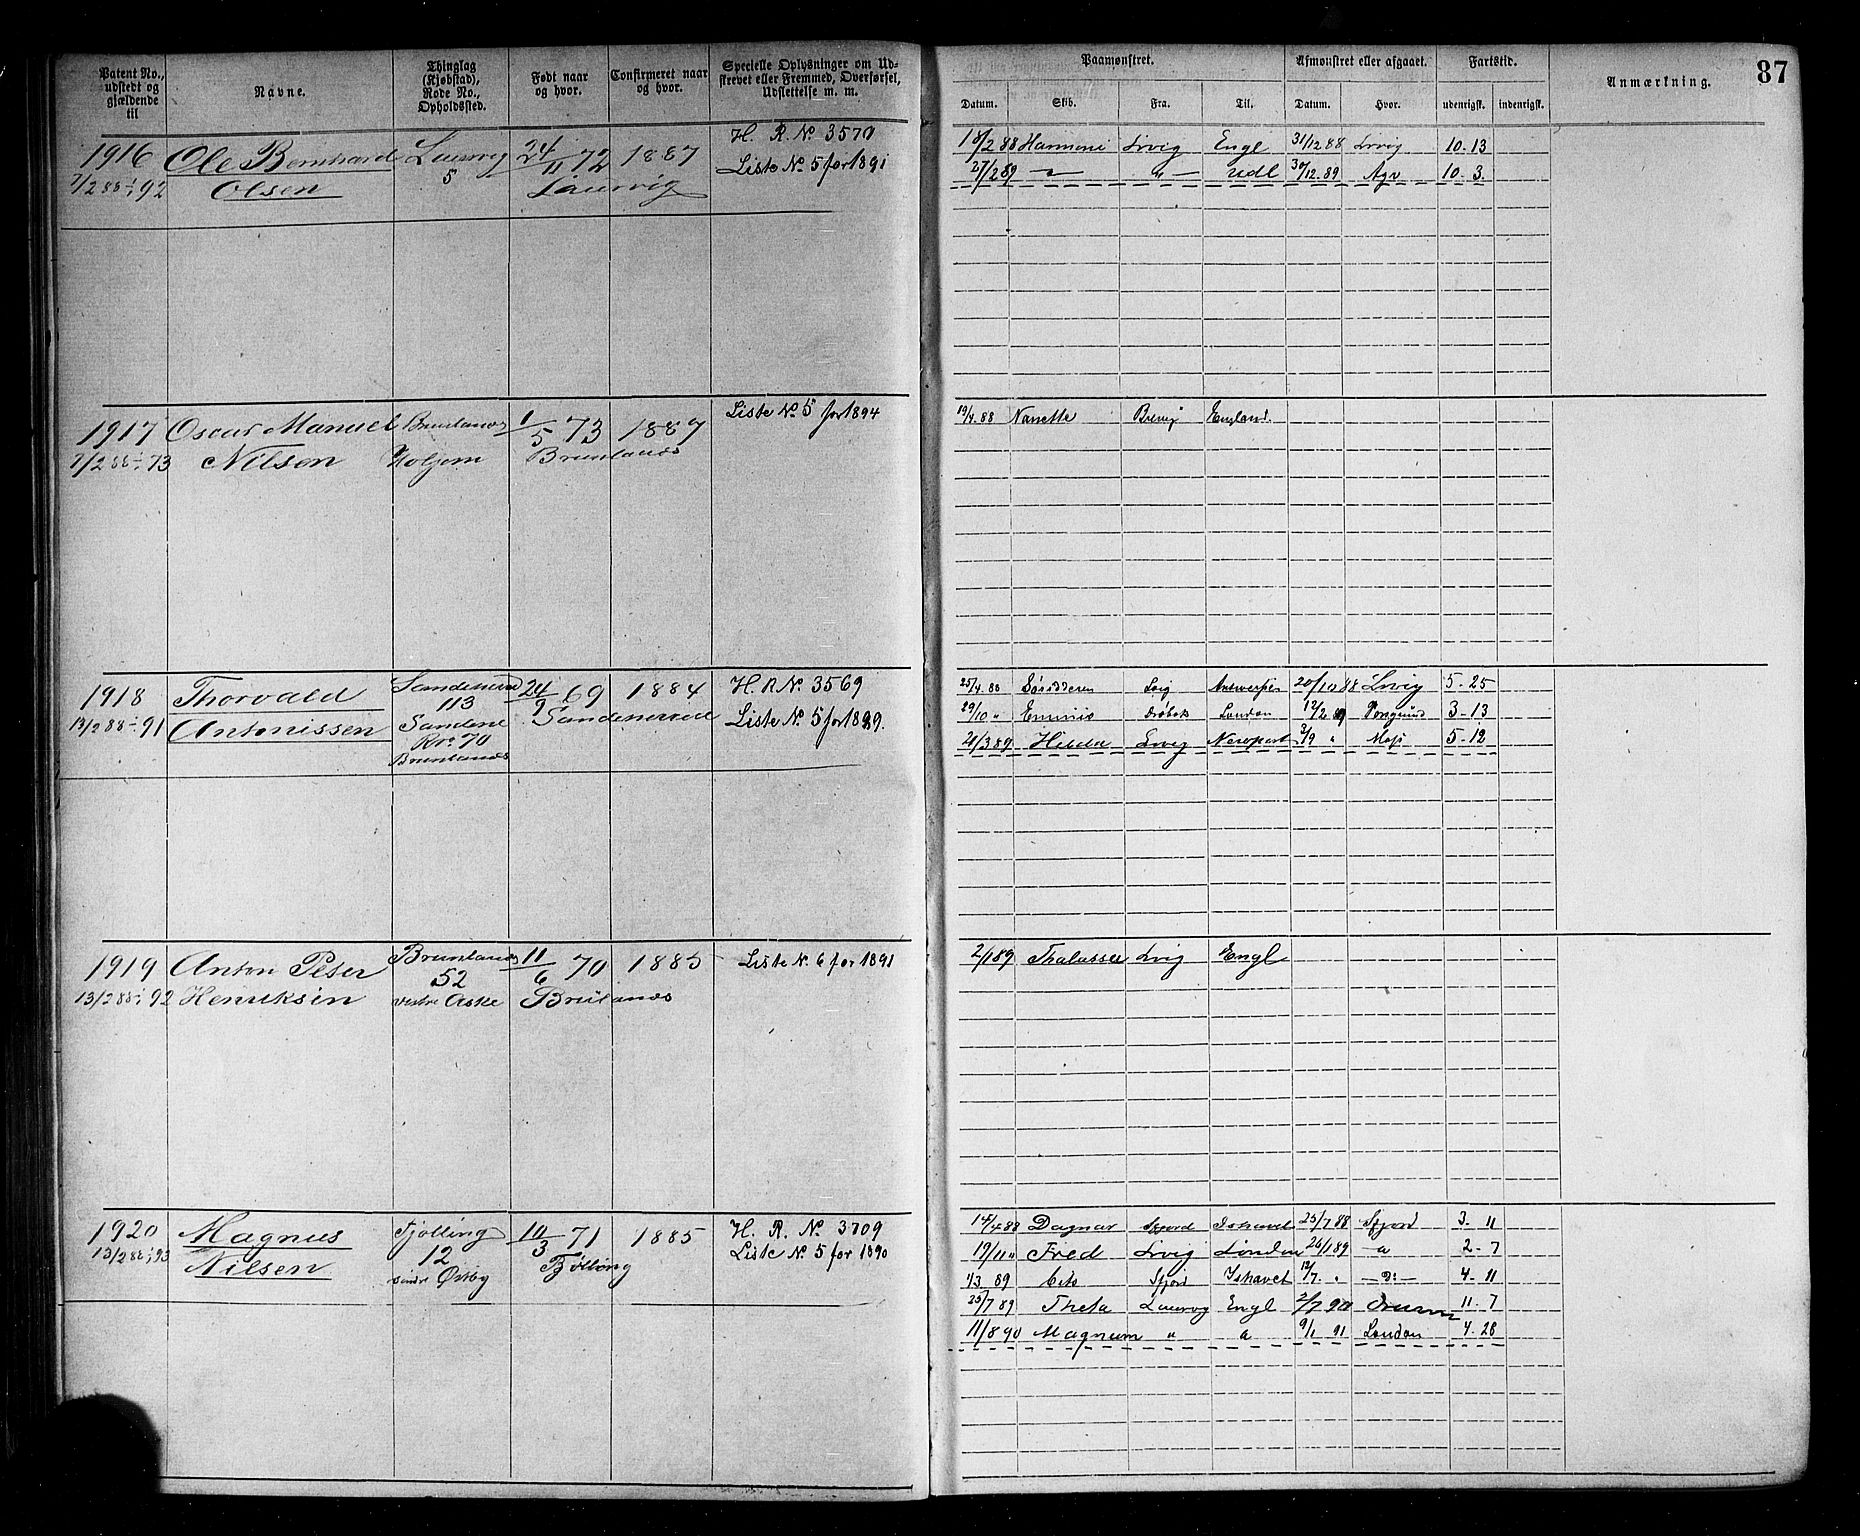 Patent No., udstedt og gjældende til | Navne. | Thinglag (Kjøbstad), Rode No., Opholdssted. | Født naar og hvor. | Confirmeret naar og hvor. | Specielle Oplysninger om Udskrevet eller Fremmed, Overførsel, Udslettelse m. m.
1916 Ole Bernhard Laurvig 24/11 72 1887 H. R. No 3570
7/2 88 1/1 92 Olsen 5 Laurvig Liste No. 5 for 1891
1917 Oscar Manuel Brunlanæs 1/5 73 1887 Liste No. 5 for 1894
7/2 88 1/1 73 Nilsen Brunlanæs
1918 Thorvald Sandeherred 24/9 69 1884 H. R No. 3569
113
13/2 88 1/1 91 Antonissen Sandene Sandeherred Liste No. 5 for 1889.
Rno 70
Brunlanæs
1919 Anton Peter Brunlanæs 11/6 70 1885 Liste No. 6 for 1891
52
13/2 88 1/1 92 Henriksen vestre Aske Brunlanæs
1920 Magnus Tjølling 10/3 71 1885 H. R. No. 3709
12 Liste No. 5 for 1890
13/2 88 1/1 93 Nilsen søndre Østby Tjølling
87
Paamønstret. | Afmønstret eller afgaaet. | Fartstid. | Anmærkning.
Datum. | Skib. | Fra. | Til. | Datum. | Hvor. | udenrigsk. | indenrigsk.
18/2 88 Harmoni Lrvig Engl 31/12 88 Lrvig 10-13
27/2 89 — " — Udl 30/12.89 10. 3.
19/4. 88 Nanette Brevig England.
25/4. 88 Lvig Antwerpen 20/10 88 Lrvig 5-25
29/10 " Drøbak London 12/2 89 Porsgrund 3-13
21/3 89 Hilda Lrvig Newport 3/9 " Moss 5-12
2/1 89 Thalassa Lvig Engl
14/4 88 Dagnar Sfjord Ishavet 25/7 88 Sfjord 3- 11
19/11 " Fred Lrvig London 26/1 89 — " 2- 7
1/3 89 Sfjord Ishavet 12/7. " — D: — 4- 11
25/7 89 Theta Laurvig Engl 2/7 90 11- 7
11/8 90 Magnum " " 9/1 91 London 4. 28